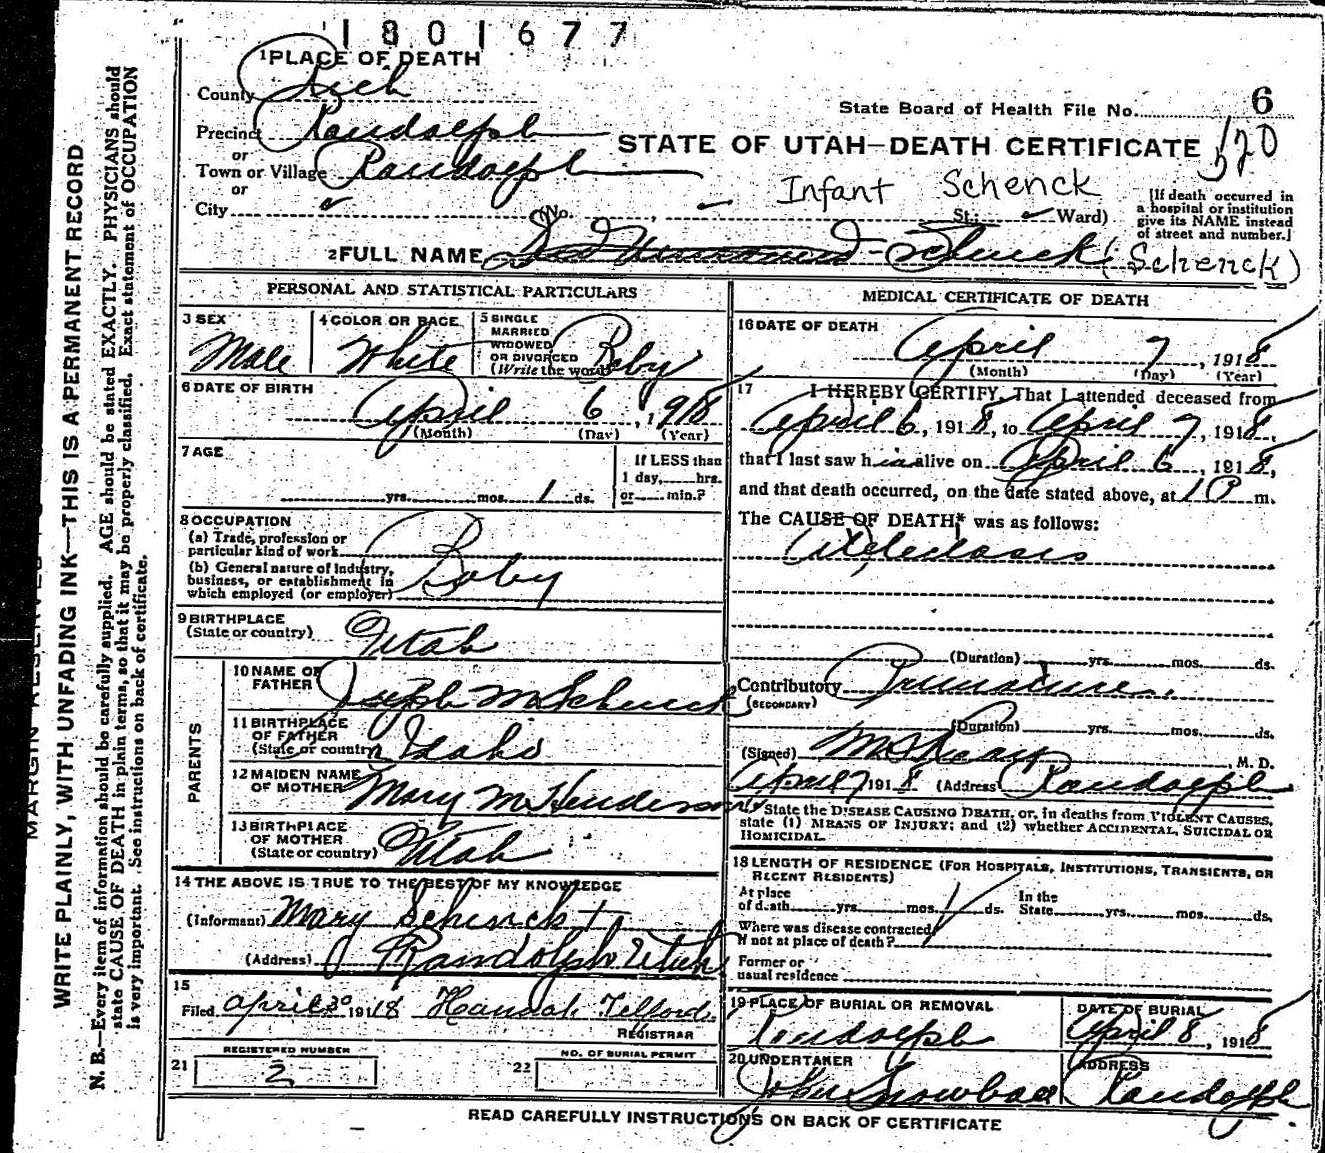 1801677
1 PLACE OF DEATH
County Rich
State Board of Health File No. 6
Precinct Randolph
520
or
STATE OF UTAH—DEATH CERTIFICATE
Town or Village Randolph
or
Infant Schenck
City (No. , St.; Ward)
[If death occurred in
a hospital or institution
give its NAME instead
of street and number.]
2 FULL NAME Schenck (Schenck)
PERSONAL AND STATISTICAL PARTICULARS
3 SEX
Male
4 COLOR OR RACE
White
5 SINGLE
MARRIED
WIDOWED
OR DIVORCED
(Write the word)
Baby
6 DATE OF BIRTH
April 6, 1918
(Month) (Day) (Year)
7 AGE
yrs. mos. 1 ds.
If LESS than
1 day, hrs.
or min.?
8 OCCUPATION
(a) Trade, profession or
particular kind of work
(b) General nature of industry,
business, or establishment in
which employed (or employer)
Baby
9 BIRTHPLACE
(State or country)
Utah
PARENTS
10 NAME OF
FATHER
Joseph M Schenck
11 BIRTHPLACE
OF FATHER
(State or country)
Idaho
12 MAIDEN NAME
OF MOTHER
Mary M Henderson
13 BIRTHPLACE
OF MOTHER
(State or country)
Utah
14 THE ABOVE IS TRUE TO THE BEST OF MY KNOWLEDGE
(Informant) Mary Schenck
(Address) Randolph Utah
15
Filed April 30 1918 Hannah Telford
REGISTRAR
21
REGISTERED NUMBER
2
22
NO. OF BURIAL PERMIT
MEDICAL CERTIFICATE OF DEATH
16 DATE OF DEATH
April 7, 1918
(Month) (Day) (Year)
17 I HEREBY CERTIFY, That I attended deceased from
April 6, 1918, to April 7, 1918,
that I last saw him alive on April 6, 1918,
and that death occurred, on the date stated above, at 1 P m.
The CAUSE OF DEATH* was as follows:
Atelectasis
(Duration) yrs. mos. ds.
Contributory
(SECONDARY)
(Duration) yrs. mos. ds.
(Signed) , M. D.
April 7 1918 (Address Randolph
* State the DISEASE CAUSING DEATH, or, in deaths from VIOLENT CAUSES,
state (1) MEANS OF INJURY; and (2) whether ACCIDENTAL, SUICIDAL OR
HOMICIDAL.
18 LENGTH OF RESIDENCE (FOR HOSPITALS, INSTITUTIONS, TRANSIENTS, OR
RECENT RESIDENTS)
At place
of death yrs. mos. 1 ds.
In the
State yrs. mos. ds.
Where was disease contracted
if not at place of death?
Former or
usual residence
19 PLACE OF BURIAL OR REMOVAL
Randolph
DATE OF BURIAL
April 8, 1918
20 UNDERTAKER
John Snowball
ADDRESS
Randolph
READ CAREFULLY INSTRUCTIONS ON BACK OF CERTIFICATE
WRITE PLAINLY, WITH UNFADING INK—THIS IS A PERMANENT RECORD
N. B.—Every item of information should be carefully supplied. AGE should be stated EXACTLY. PHYSICIANS should
state CAUSE OF DEATH in plain terms, so that it may be properly classified. Exact statement of OCCUPATION
is very important. See instructions on back of certificate.